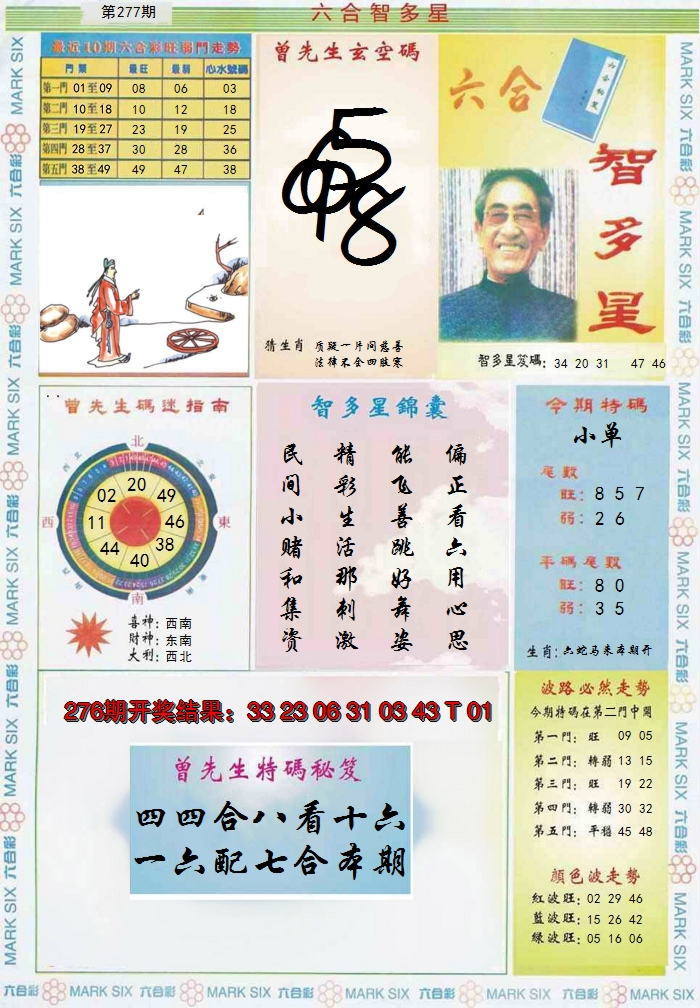 第277期
六合智多星
最近10期六合彩旺弱門走勢
門票 最旺 最弱 心水號碼
第一門 01至09 08 06 03
第二門 10至18 10 12 18
第三門 19至27 23 19 25
第四門 28至37 30 28 36
第五門 38至49 49 47 38
曾先生玄空碼
猜生肖 质疑一片问慈善
法律不全四肢寒
六合
六合秘笈
智多星
智多星笈碼: 34 20 31 47 46
曾先生碼迷指南
北
西北
東北
02 20 49
西 11 46 東
44 40 38
南
喜神: 西南
財神: 东南
大利: 西北
智多星錦囊
偏正看六用心思
能飞善跳好舞姿
精彩生活那刺激
民间小赌和集资
今期特碼
小单
尾數
旺: 8 5 7
弱: 2 6
平碼尾數
旺: 8 0
弱: 3 5
生肖: 六蛇马来本期开
276期开奖结果: 33 23 06 31 03 43 T 01
曾先生特碼秘笈
四四合八看十六
一六配七合本期
波路必然走勢
今期特碼在第二門中開
第一門: 旺 09 05
第二門: 轉弱 13 15
第三門: 旺 19 22
第四門: 轉弱 30 32
第五門: 平穩 45 48
顏色波走勢
紅波旺: 02 29 46
藍波旺: 15 26 42
綠波旺: 05 16 06
六合彩 MARK SIX 六合彩 MARK SIX 六合彩 MARK SIX 六合彩 MARK SIX 六合彩